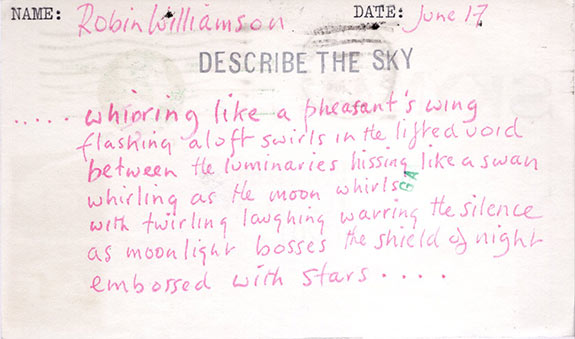 NAME: Robin Williamson DATE: June 17
DESCRIBE THE SKY
..... whirring like a pheasant's wing
flashing aloft swirls in the lifted void
between the luminaries hissing like a swan
whirling as the moon whirls
with twirling laughing warring the silence
as moonlight bosses the shield of night
embossed with stars ....